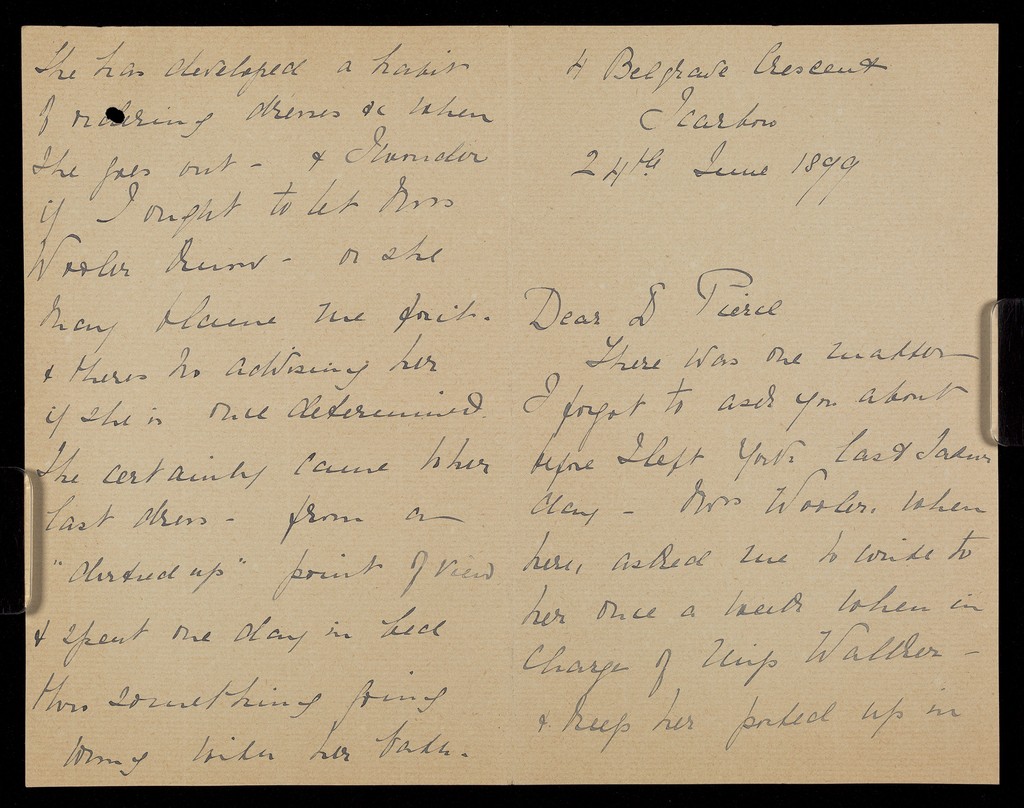 4 Belgrave Crescent
Scarboro
24th June 1899
Dear Dr Pierce
There was one matter
I forgot to ask you about
before I left York last Satur
day - Mrs Wooler, when
here, asked me to write to
her once a week when in
charge of Miss Walker -
& keep her posted up in
She has developed a habit
of ordering dresses &c when
she goes out - & I wonder
if I ought to let Mrs
Wooler know - or she
may blame me for it -
& theres no advising her
if she is once determined.
She certainly came to her
last dress - from a
"dirtied up" point of view
& spent one day in bed
thro something going
wrong with her